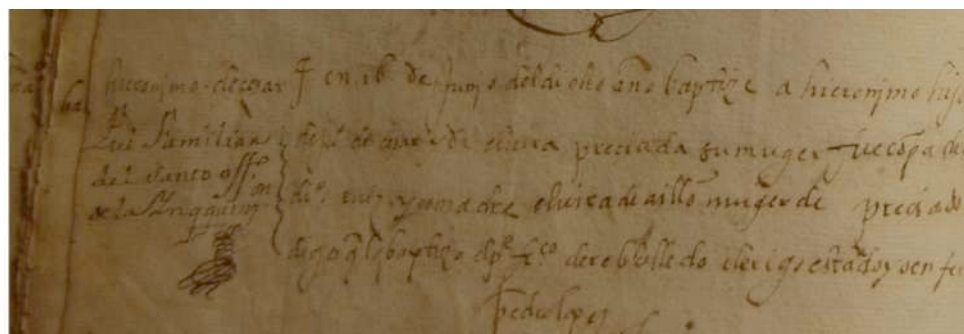 hieronimo de cesar
fue familiar
del santo offº
de la Inqquiçion
en 16 de junio del dicho año baptize a hieronimo hijo
de pº de cesar i de elvira preciada su muger fue conpadre
diº ruiz y comadre elvira de aillon muger de preciado
digo q lo baptizo el pe frco de rebolledo clerigo estādo yo enfer
Pedro lopez